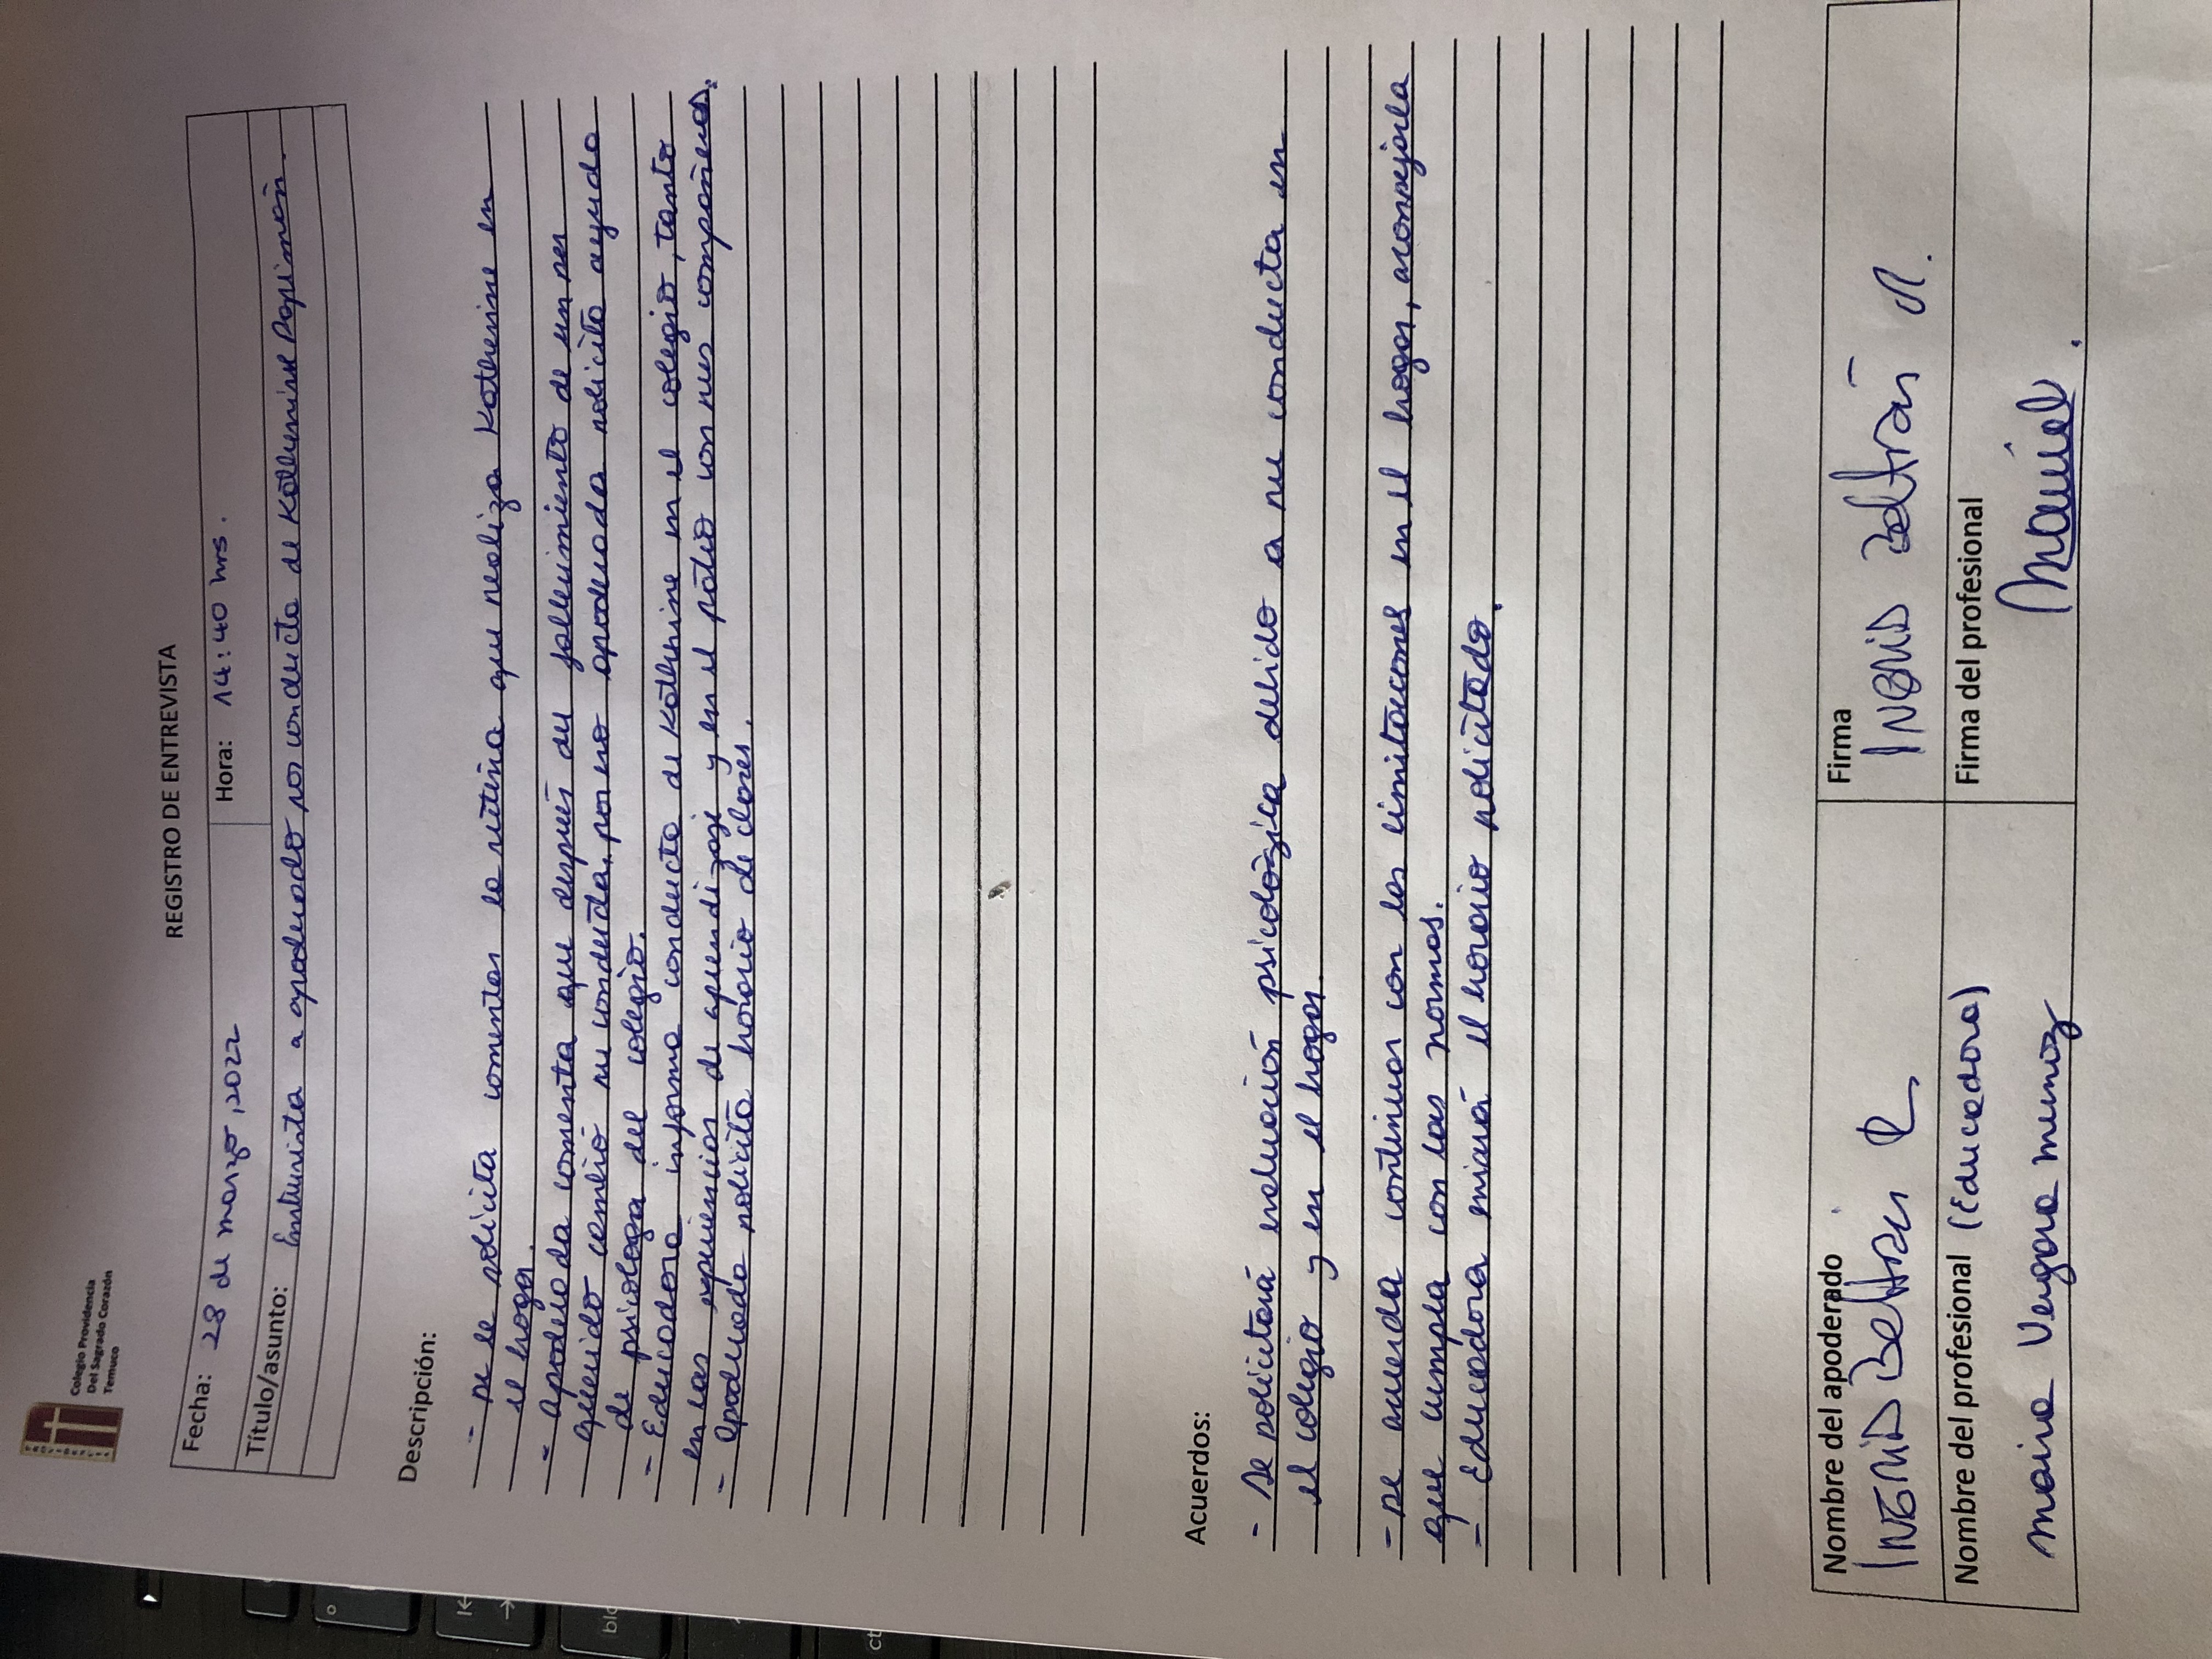 Colegio Providencia
Del Sagrado Corazón
Temuco
REGISTRO DE ENTREVISTA
Fecha: 28 de marzo, 2022 Hora: 14:40 hrs.
Título/asunto: Entrevista a apoderado por conducta de Katherine
Descripción:
- se le solicita comentar la rutina que realiza Katherine en
el hogar.
- apoderada comenta que después del fallecimiento de un ser
querido cambio su conducta, por eso apoderada solicita ayuda
de psicologa del colegio.
- Educadora informa conducta de Katherine en el colegio, tanto
en las experiencias de aprendizaje y en el patio con sus compañeros.
- Apoderada solicita horario de clases.
Acuerdos:
- Se solicitará evaluación psicológica debido a su conducta en
el colegio y en el hogar.
- se acuerda continuar con las limitaciones en el hogar, aconsejarla
que cumpla con las normas.
- Educadora enviará el horario solicitado.
Nombre del apoderado Firma
INGRID Beltrán R INGRID Beltrán R.
Nombre del profesional (Educadora) Firma del profesional
Vergara Muñoz
blo
ct